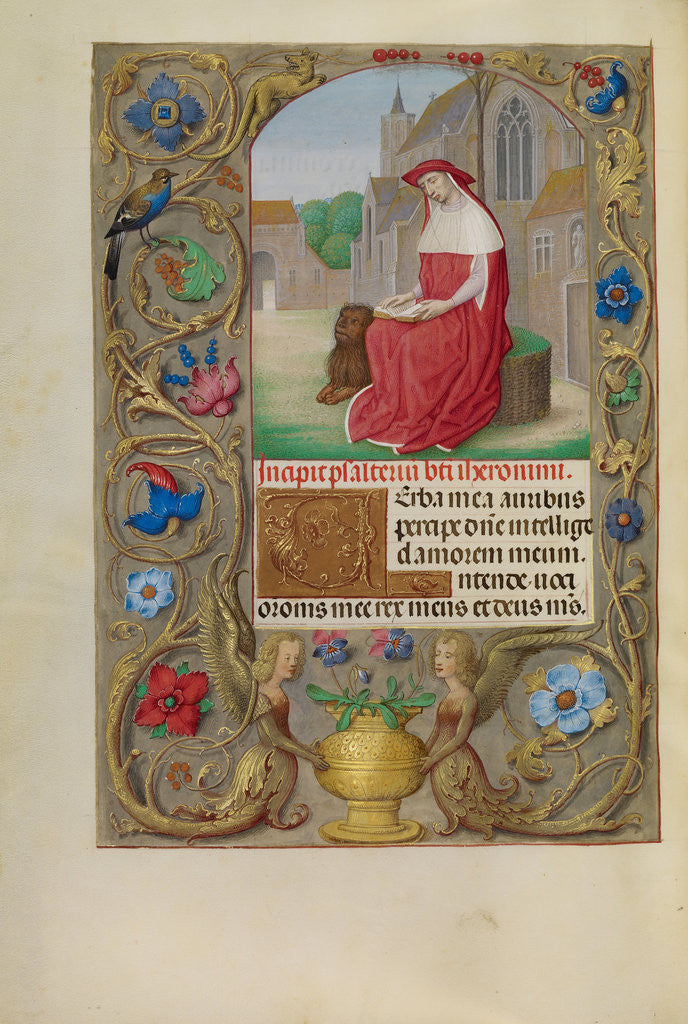 Incipit psalteriū bti iheronimi.
Verba mea auribus
percipe dn̄e intellige
clamorem meum.
Intende uoci
oronis mee rex meus et deus ms̄.